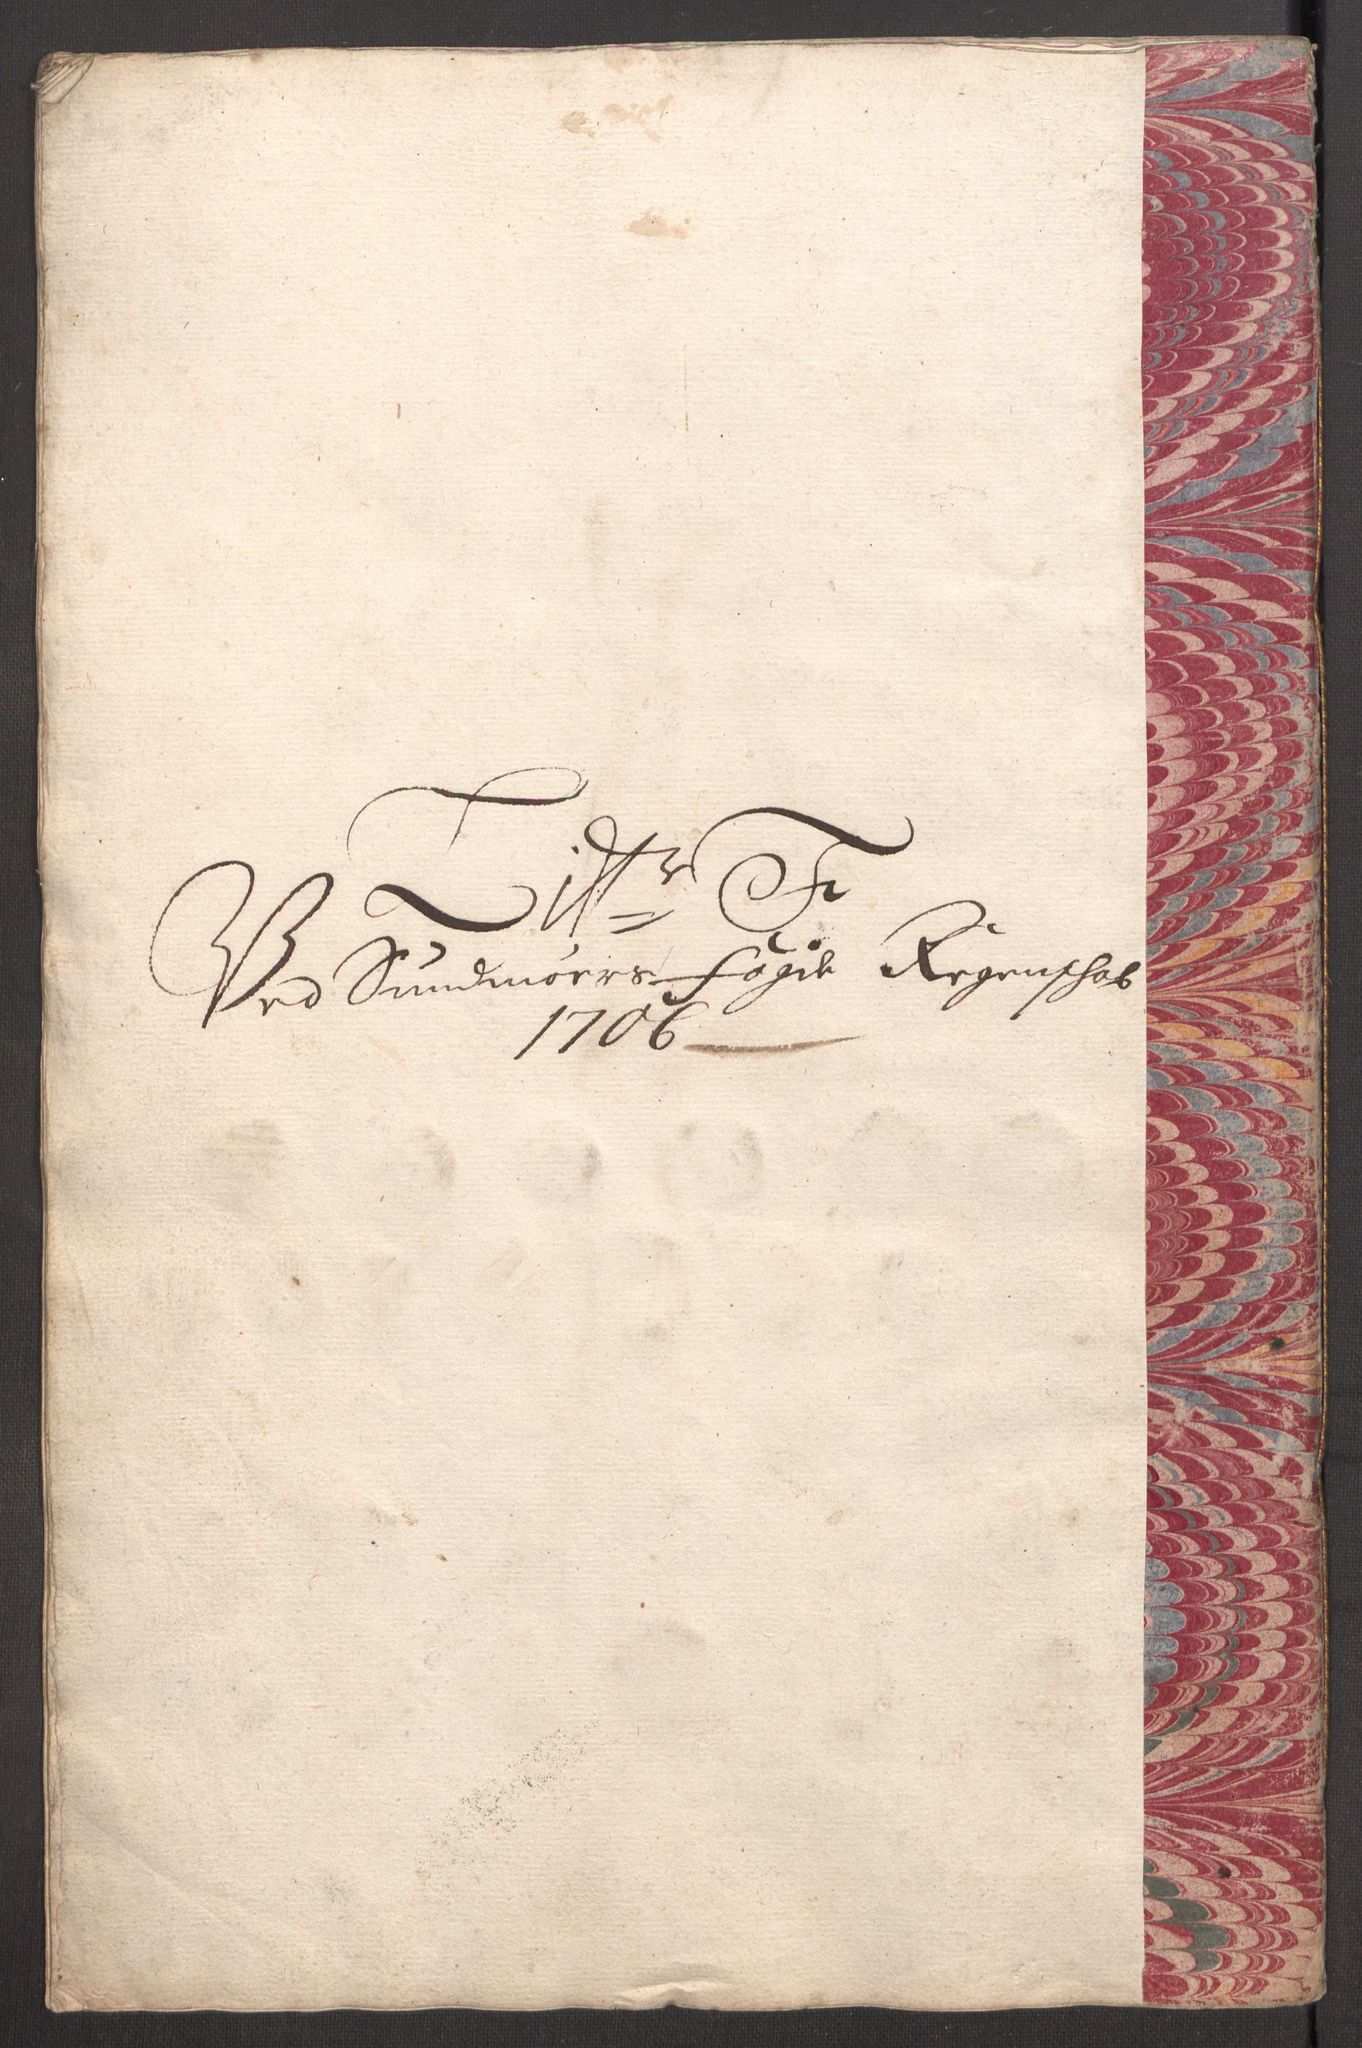 Litr F
Ved Sundmörs fögdr Regenschab
1706